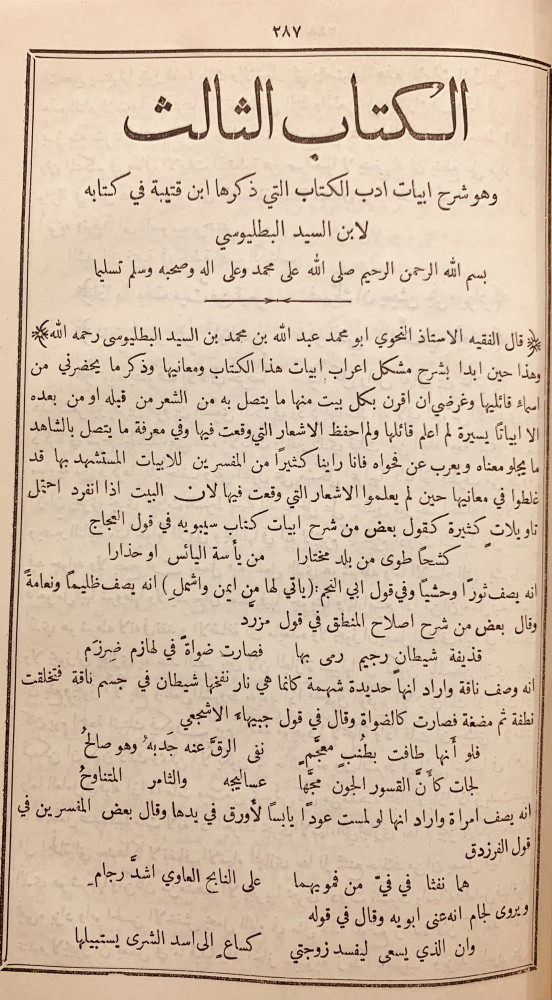 ٢٨٧
الكتاب الثالث
وهو شرح ابيات ادب الكتاب التي ذكرها ابن قتيبة في كتابه
لابن السيد البطليوسي
بسم الله الرحمن الرحيم صلى الله على محمد وعلى اله وصحبه وسلم تسليما
قال الفقيه الاستاذ النحوي ابو محمد عبد الله بن محمد بن السيد البطليوسى رحمه الله
وهذا حين ابدا بشرح مشكل اعراب ابيات هذا الكتاب ومعانيها وذكر ما يحضرني من
اسماء قائليها وغرضي ان اقرن بكل بيت منها ما يتصل به من الشعر من قبله او من بعده
الا ابياتًا يسيرة لم اعلم قائلها ولم احفظ الاشعار التي وقعت فيها وفي معرفة ما يتصل بالشاهد
ما يجلو معناه ويعرب عن فحواه فانا راينا كثيرًا من المفسرين للابيات المستشهد بها قد
غلطوا في معانيها حين لم يعلموا الاشعار التي وقعت فيها لان البيت اذا انفرد احتمل
تاويلاتٍ كثيرة كقول بعض من شرح ابيات كتاب سيبويه في قول العجاج
كشحًا طوى من بلد مختارا من يأسة اليائس او حذارا
انه يصف ثورًا وحشيًا وفي قول ابي النجم: (ياتي لها من ايمن واشملِ) انه يصف ظليمًا ونعامةً
وقال بعض من شرح اصلاح المنطق في قول مزرّد
قذيفة شيطانٍ رجيم رمى بها فصارت ضواةً في لهازم ضِرزَم
انه وصف ناقة واراد انها حديدة شهمة كانما هي نار نفخها شيطان في جسم ناقة فتخلقت
نطفة ثم مضغة فصارت كالضواة وقال في قول جبيهاء الاشجعي
فلو أنها طافت بطُنبٍ معجَّمٍ نفى الرقَّ عنه جَدبهُ وهو صالحُ
لجات كأنَّ القسور الجون مجَّها عساليجه والثامر المتناوحُ
انه يصف امراة واراد انها لو لمست عودًا يابسًا لأورق في يدها وقال بعض المفسرين في
قول الفرزدق
هما نفثا في فيّ من فمويهما على النابح العاوي اشدَّ رجامِ
ويروى لجام انه عنى ابويه وقال في قوله
وان الذي يسعى ليفسد زوجتي كساعٍ الى اسد الشرى يستبيلها